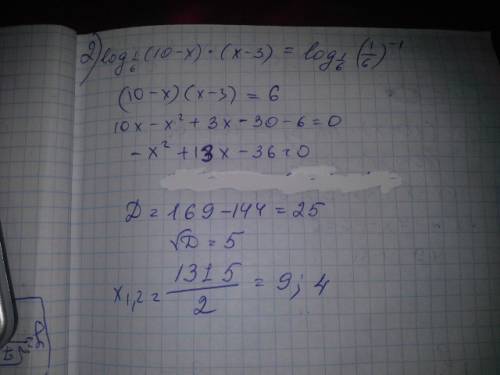 2) log_{1/6} (10-x)·(x-3) = log_{1/6} (1/6)^{-1}
(10-x)(x-3) = 6
10x - x² + 3x - 30 - 6 = 0
-x² + 13x - 36 = 0
D = 169 - 144 = 25
√D = 5
x_{1,2} = (13 ± 5)/2 = 9; 4